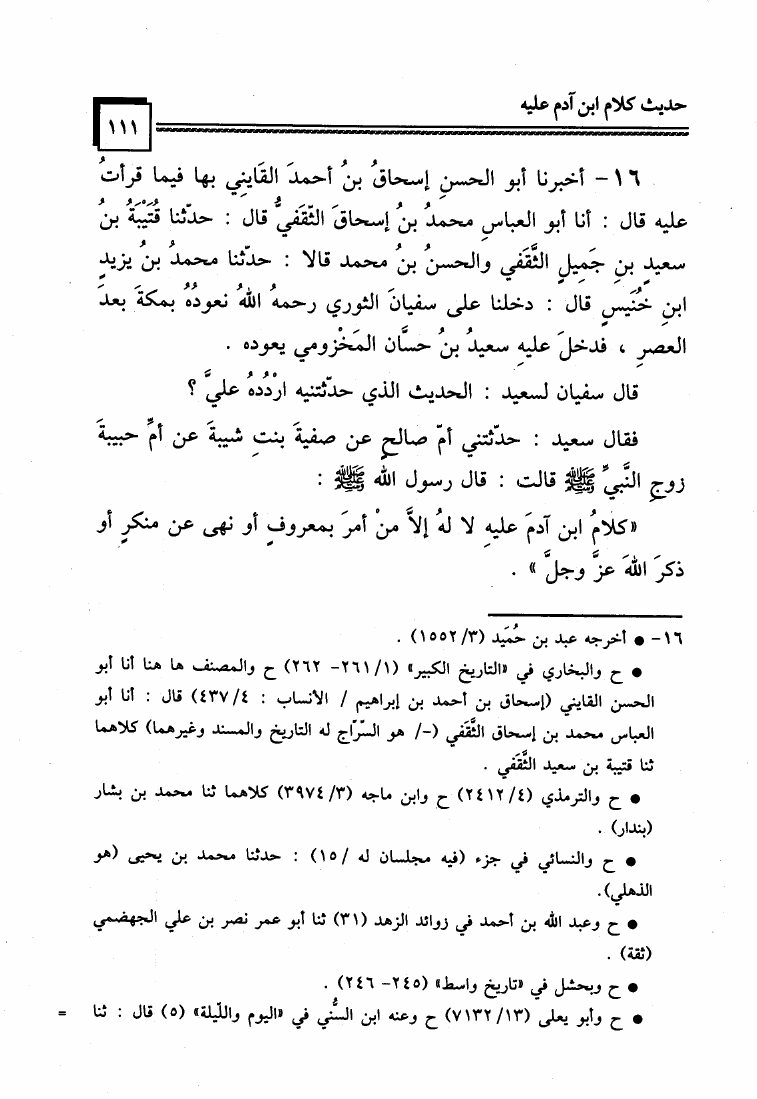 حديث كلام ابن آدم عليه
١١١
١٦- أخبرنا أبو الحسنِ إسحاقُ بنُ أحمدَ القَاينِي بها فيما قرأتُ
عليه قال : أنا أبو العباسِ محمدُ بنُ إسحاقَ الثّقَفيُّ قال : حدّثنا قُتَيْبَةُ بنُ
سعيدِ بنِ جَمِيلٍ الثَّقَفي والحسنُ بنُ محمد قالا : حدّثنا محمدُ بنُ يزيدِ
ابنِ خُنَيسٍ قال : دخلنا على سفيانَ الثوري رحمهُ اللهُ نعودُهُ بمكةَ بعدَ
العصرِ ، فدخلَ عليهِ سعيدُ بنُ حسَّان المَخْزومي يعوده .
قال سفيان لسعيد : الحديث الذي حدّثتنيه ارْدُدهُ عليَّ ؟
فقال سعيد : حدّثتني أمّ صالحٍ عن صفيةَ بنتِ شيبةَ عن أمِّ حبيبةَ
زوجِ النَّبيِّ ﷺ قالت : قال رسول الله ﷺ :
«كلامُ ابن آدمَ عليهِ لا لهُ إلاَّ منْ أمرَ بمعروفٍ أو نهى عن منكرٍ أو
ذكرَ اللهَ عزَّ وجلَّ » .
١٦- ● أخرجه عبد بن حُمَيد (٣/ ١٥٥٢) .
● ح والبخاري في «التاريخ الكبير» (١/ ٢٦١- ٢٦٢) ح والمصنف ها هنا أنا أبو
الحسن القايني (إسحاق بن أحمد بن إبراهيم / الأنساب : ٤/ ٤٣٧) قال : أنا أبو
العباس محمد بن إسحاق الثَّقَفي (-/ هو السّرّاج له التاريخ والمسند وغيرهما) كلاهما
ثنا قتيبة بن سعيد الثَّقَفي .
● ح والترمذي (٤/ ٢٤١٢) ح وابن ماجه (٣/ ٣٩٧٤) كلاهما ثنا محمد بن بشار
(بندار) .
● ح والنسائي في جزء (فيه مجلسان له /١٥) : حدثنا محمد بن يحيى (هو
الذهلي).
● ح وعبد الله بن أحمد في زوائد الزهد (٣١) ثنا أبو عمر نصر بن علي الجهضمي
(ثقة) .
● ح وبحشل في «تاريخ واسط» (٢٤٥- ٢٤٦) .
● ح وأبو يعلى (١٣/ ٧١٣٢) ح وعنه ابن السُّني في «اليوم واللّيلة» (٥) قال : ثنا =